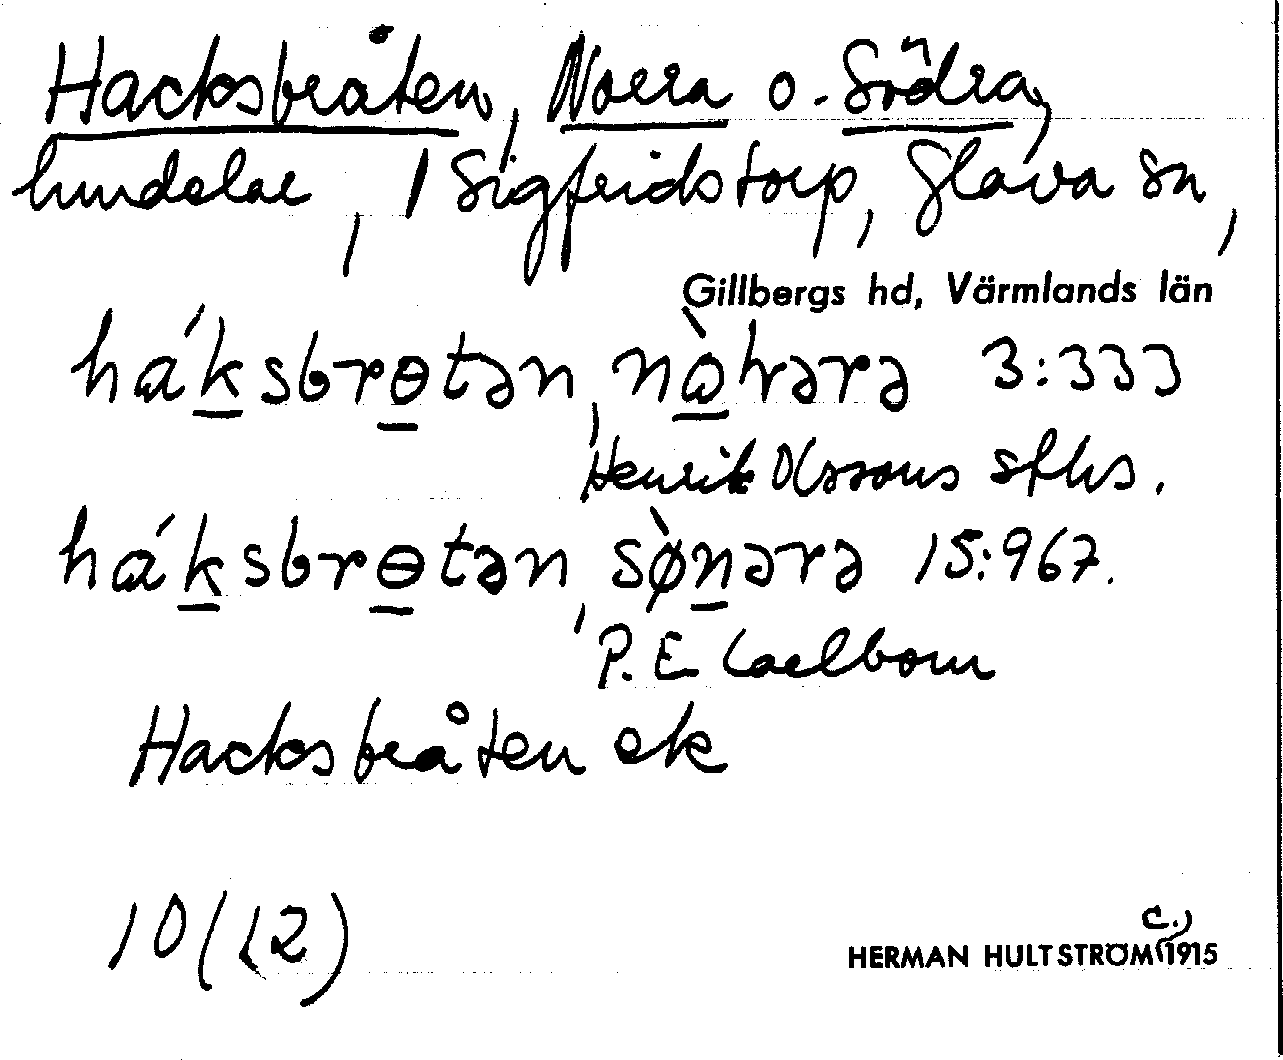 Hacksbråten, Norra o. Södra,
hmdelar, 1 Sigfridstorp, Glava sn,
Gillbergs hd, Värmlands län
háksbrɵtən, nòrərə 3:333
Henrik Olssons sths.
háksbrɵtən, sø̀nərə 15:967.
P. E Carlbom
Hacksbråten ek
10(12)
HERMAN HULTSTRÖM (c.) 1915